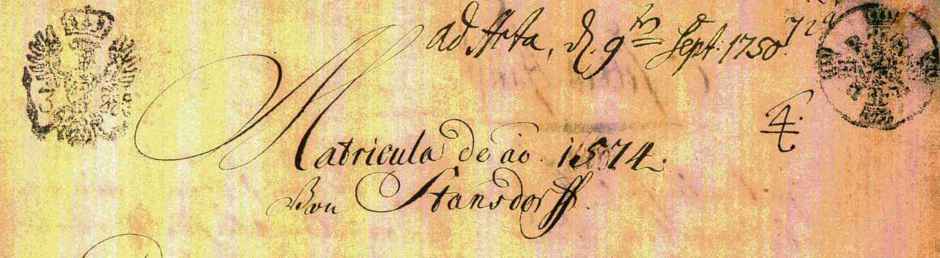 ad Acta, d. 9ᵗᵉⁿ Sept: 1750.
4.
Matricula de ao. 1574.
Von Stansdorff.